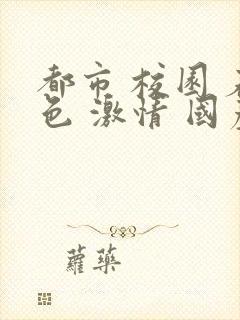 都市 校園 
色 激情 國
蘿藥